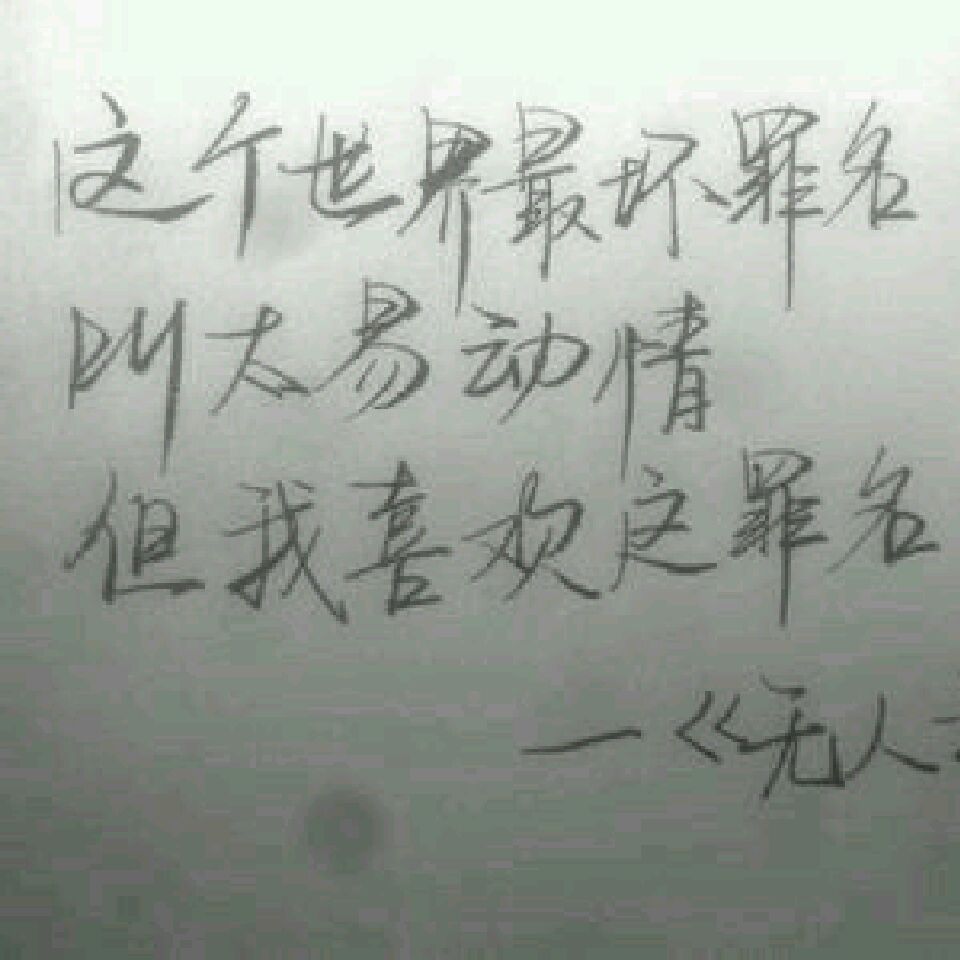 这个世界最坏罪名
叫太易动情
但我喜欢这罪名
—《无人